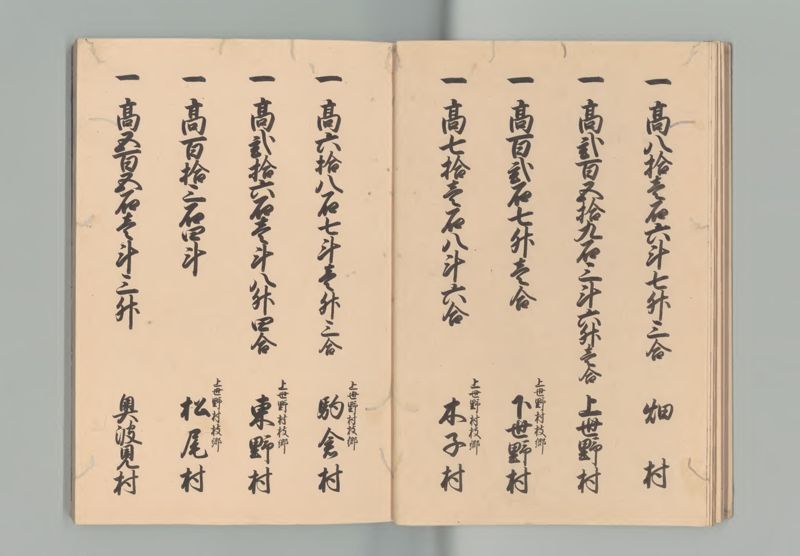 一高八拾壱石六斗七升三合 畑村
一高弐百五拾九石三斗六升壱合 上世野村
一高百弐石七升壱合 上世野村枝郷 下世野村
一高七拾壱石八斗六合 上世野村枝郷 木子村
一高六拾八石七斗壱升三合 上世野村枝郷 駒倉村
一高弐拾六石壱斗八升四合 上世野村枝郷 東野村
一高百拾三石四斗 上世野村枝郷 松尾村
一高五百五石壱斗三升 奥波見村